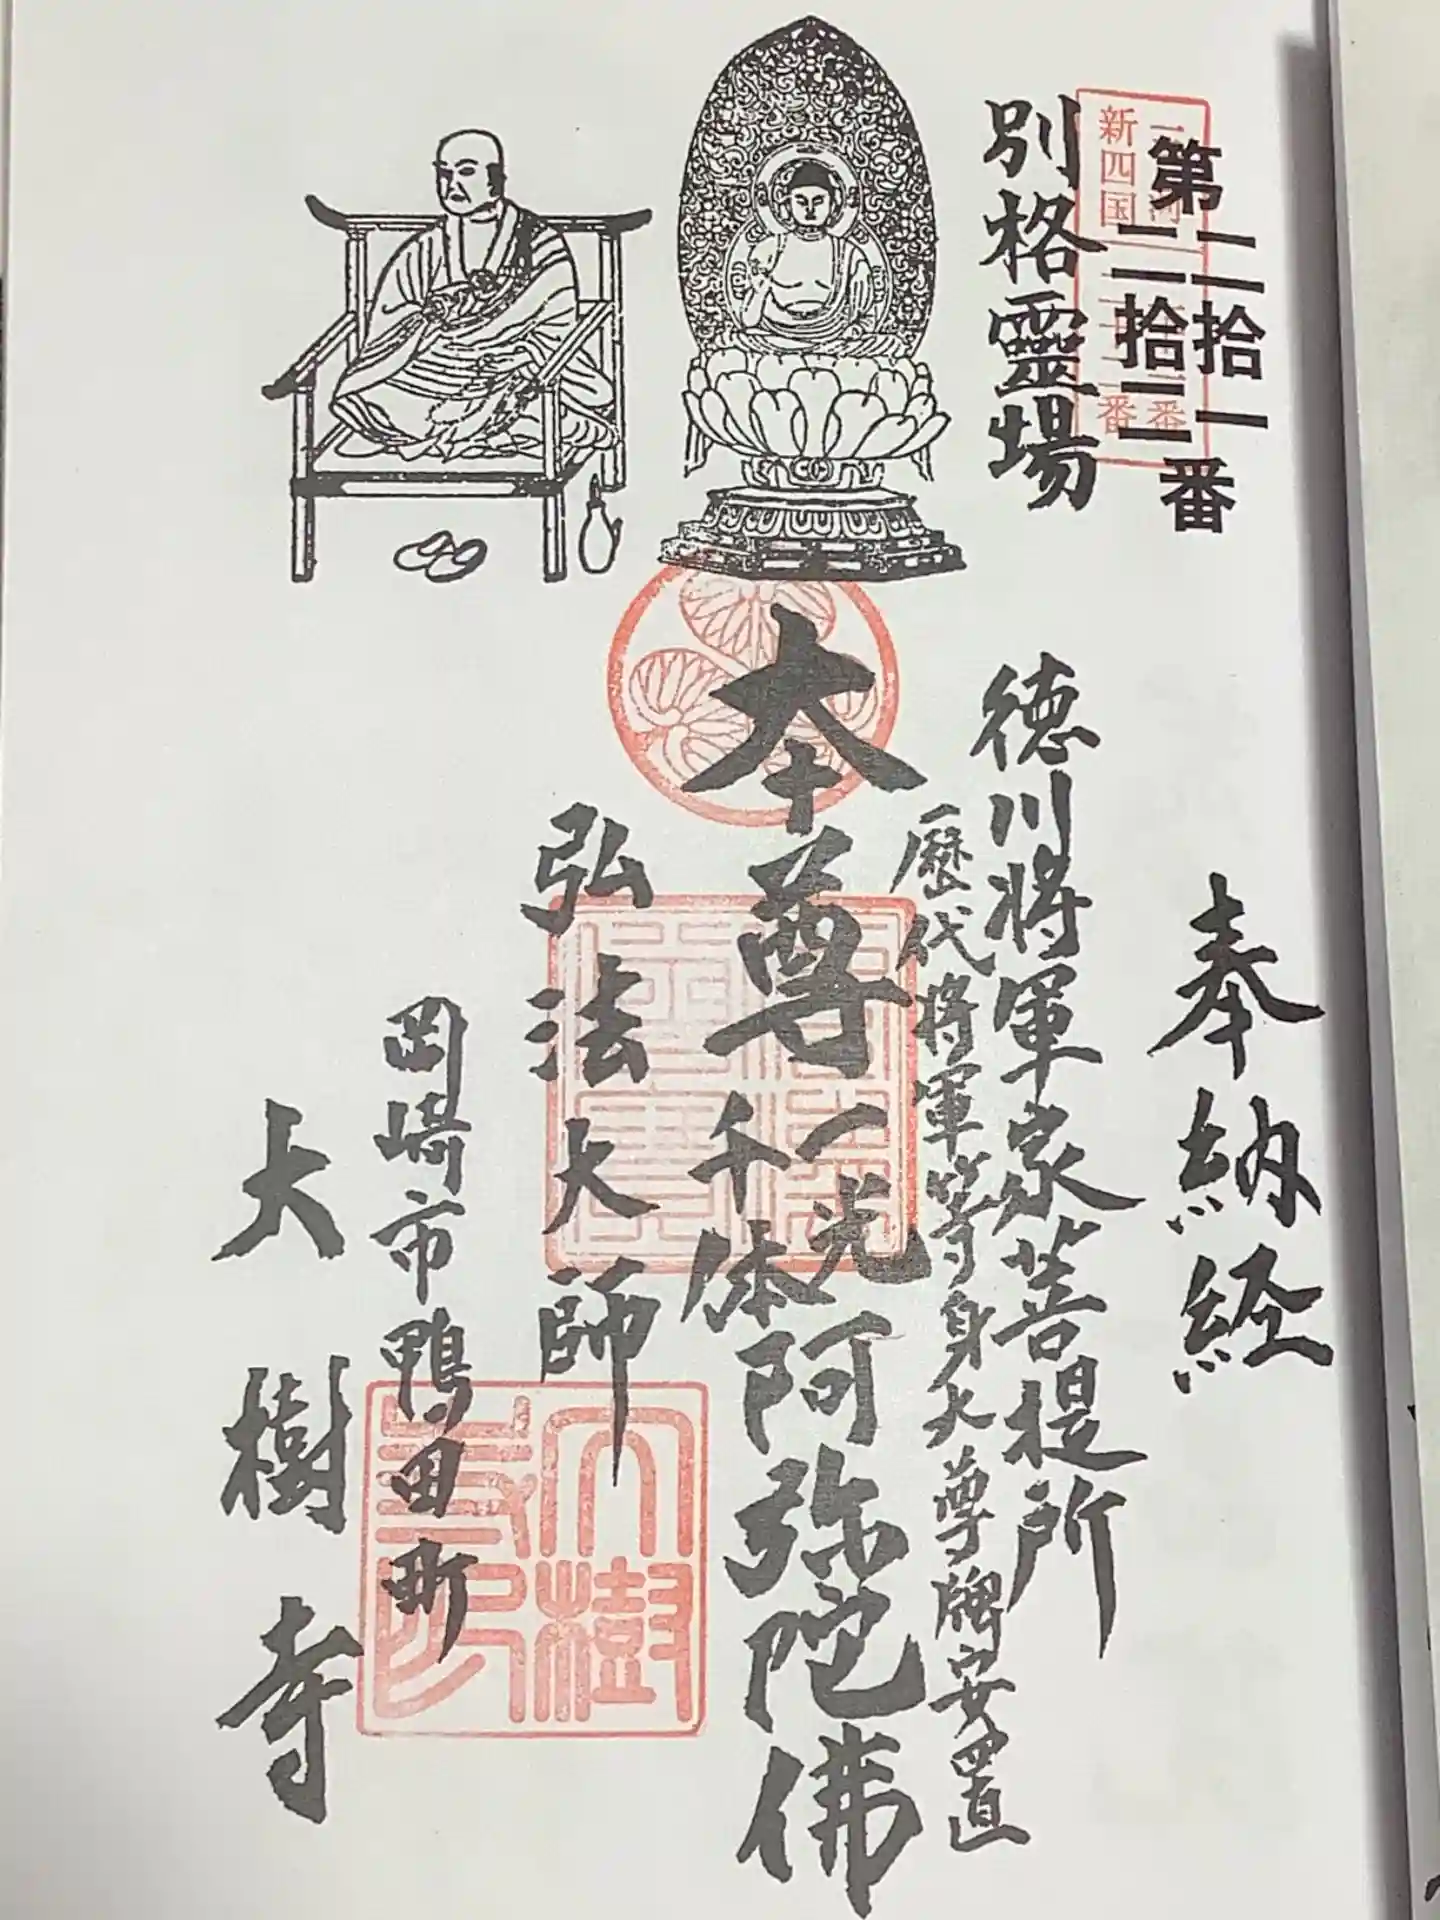 第二拾一二拾二番
別格霊場
奉納経
徳川将軍家菩提所
歴代将軍等身大尊牌安置
本尊一光千体阿弥陀佛
弘法大師
岡崎市鴨田町
大樹寺
新四国
番
番
大樹寺印